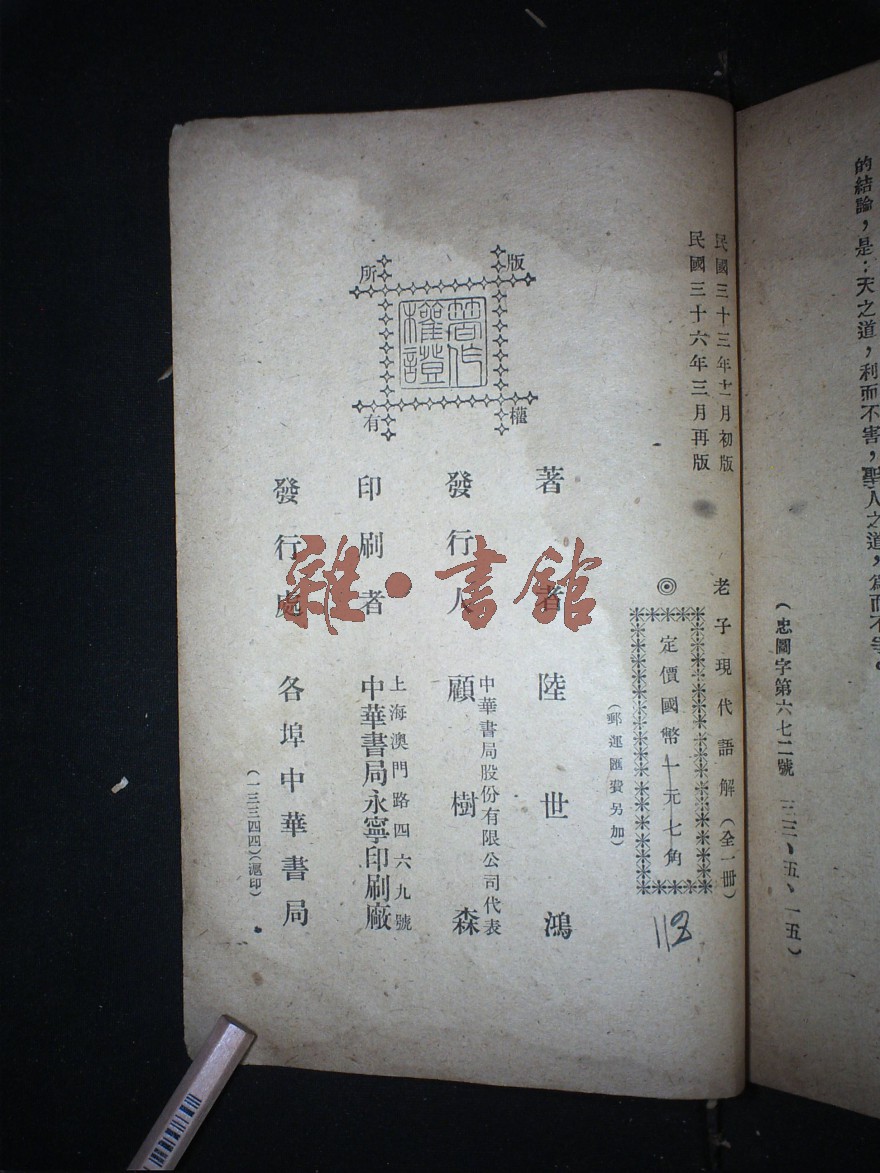 的結論，是：天之道，利而不害，聖人之道，爲而不爭。
（忠圖字第六七二號　三三、五、一五）
民國三十三年十二月初版
民國三十六年三月再版
老子現代語解（全一冊）
◎定價國幣一元七角
（郵運匯費另加）
113
版權所有
著作權證
著者　陸世鴻
發行人　中華書局股份有限公司代表
顧樹森
印刷者　上海澳門路四六九號
中華書局永寧印刷廠
發行處　各埠中華書局
（一三三四四）（滬印）
雜·書館